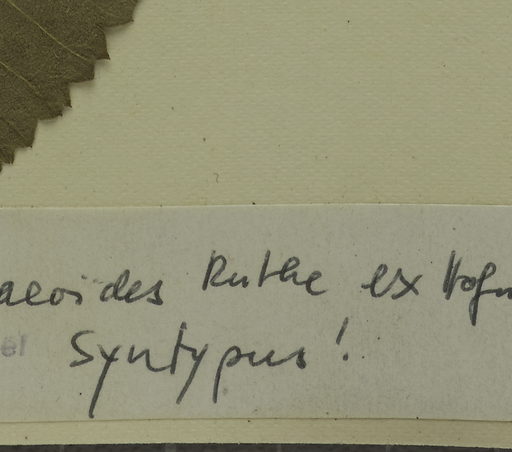 aeoides Ruthe ex Hofm
el
Syntypus!